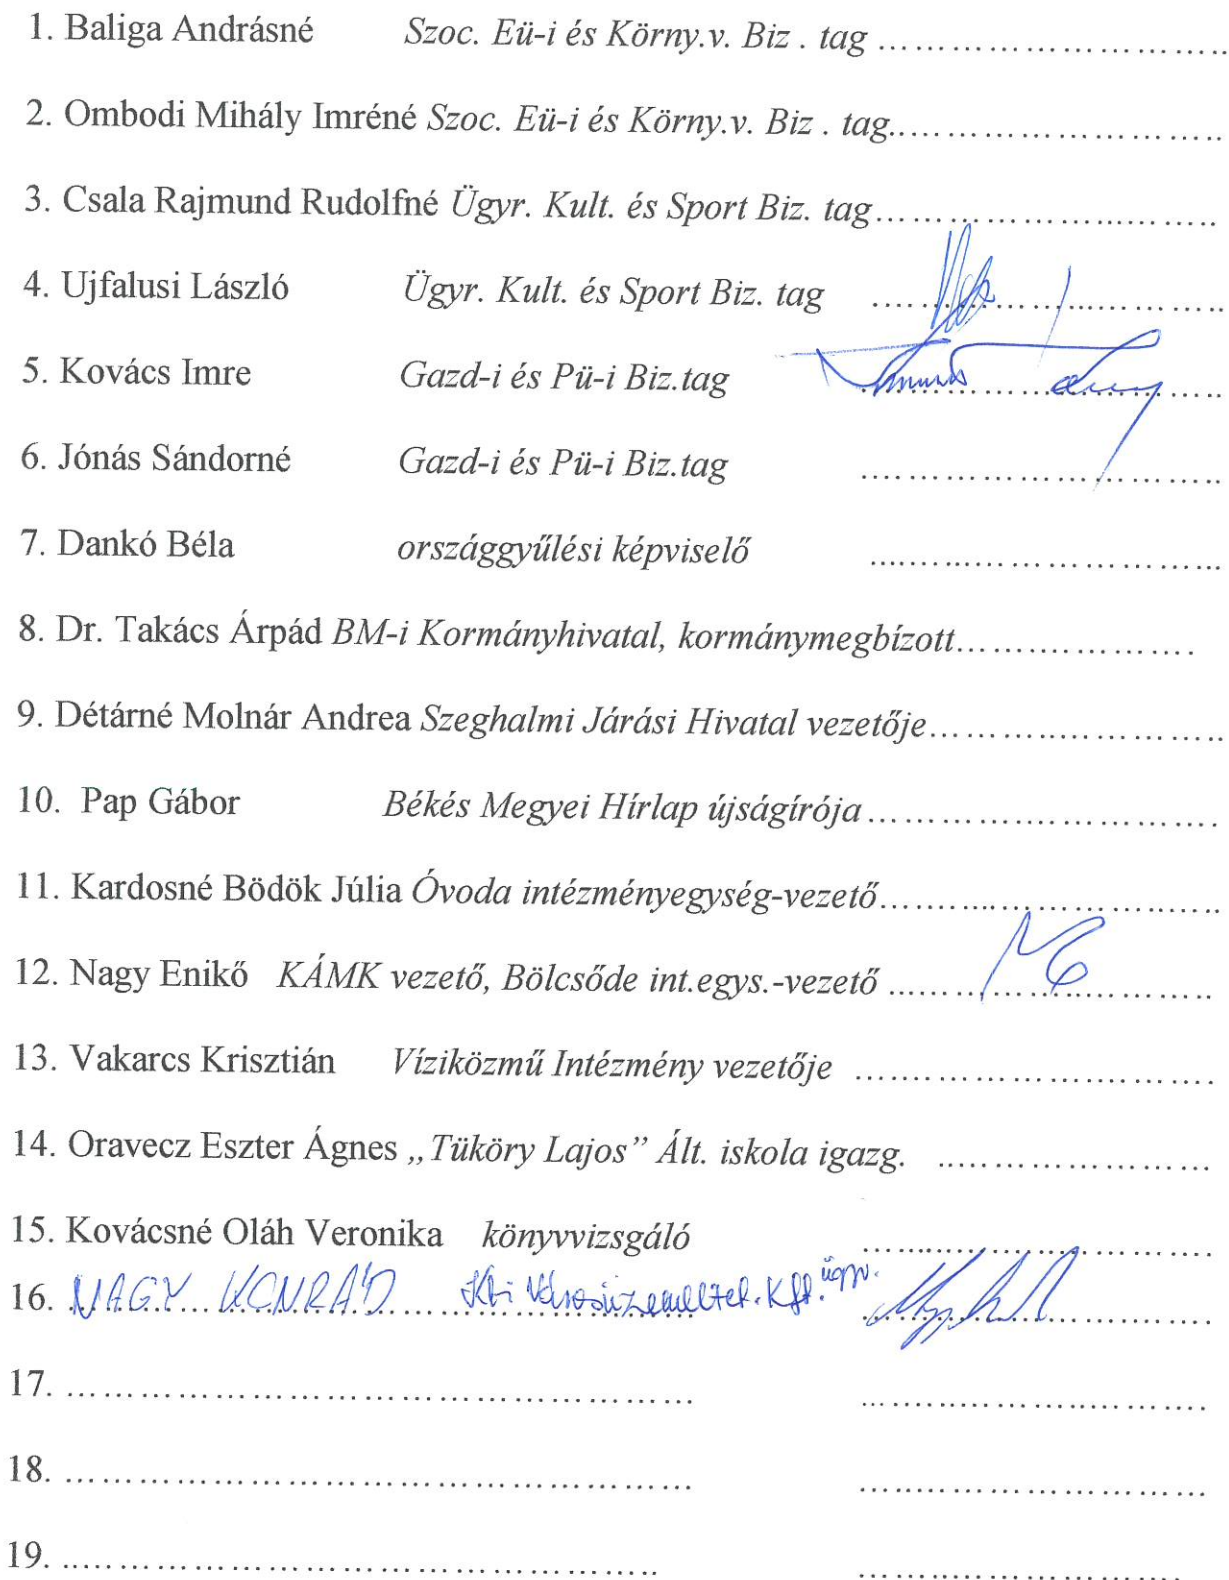 1. Baliga Andrásné Szoc. Eü-i és Körny.v. Biz . tag ................................
2. Ombodi Mihály Imréné Szoc. Eü-i és Körny.v. Biz . tag................................
3. Csala Rajmund Rudolfné Ügyr. Kult. és Sport Biz. tag................................
4. Ujfalusi László Ügyr. Kult. és Sport Biz. tag ................................
5. Kovács Imre Gazd-i és Pü-i Biz.tag ................................
6. Jónás Sándorné Gazd-i és Pü-i Biz.tag ................................
7. Dankó Béla országgyűlési képviselő ................................
8. Dr. Takács Árpád BM-i Kormányhivatal, kormánymegbízott......................
9. Détárné Molnár Andrea Szeghalmi Járási Hivatal vezetője............................
10. Pap Gábor Békés Megyei Hírlap újságírója ................................
11. Kardosné Bödök Júlia Óvoda intézményegység-vezető................................
12. Nagy Enikő KÁMK vezető, Bölcsőde int.egys.-vezető ................................
13. Vakarcs Krisztián Víziközmű Intézmény vezetője ................................
14. Oravecz Eszter Ágnes „Tüköry Lajos” Ált. iskola igazg. ..........................
15. Kovácsné Oláh Veronika könyvvizsgáló ................................
16. NAGY KONRÁD Kft. ügyv. ................................
17. ............................................................ ................................
18. ............................................................ ................................
19. ............................................................ ................................